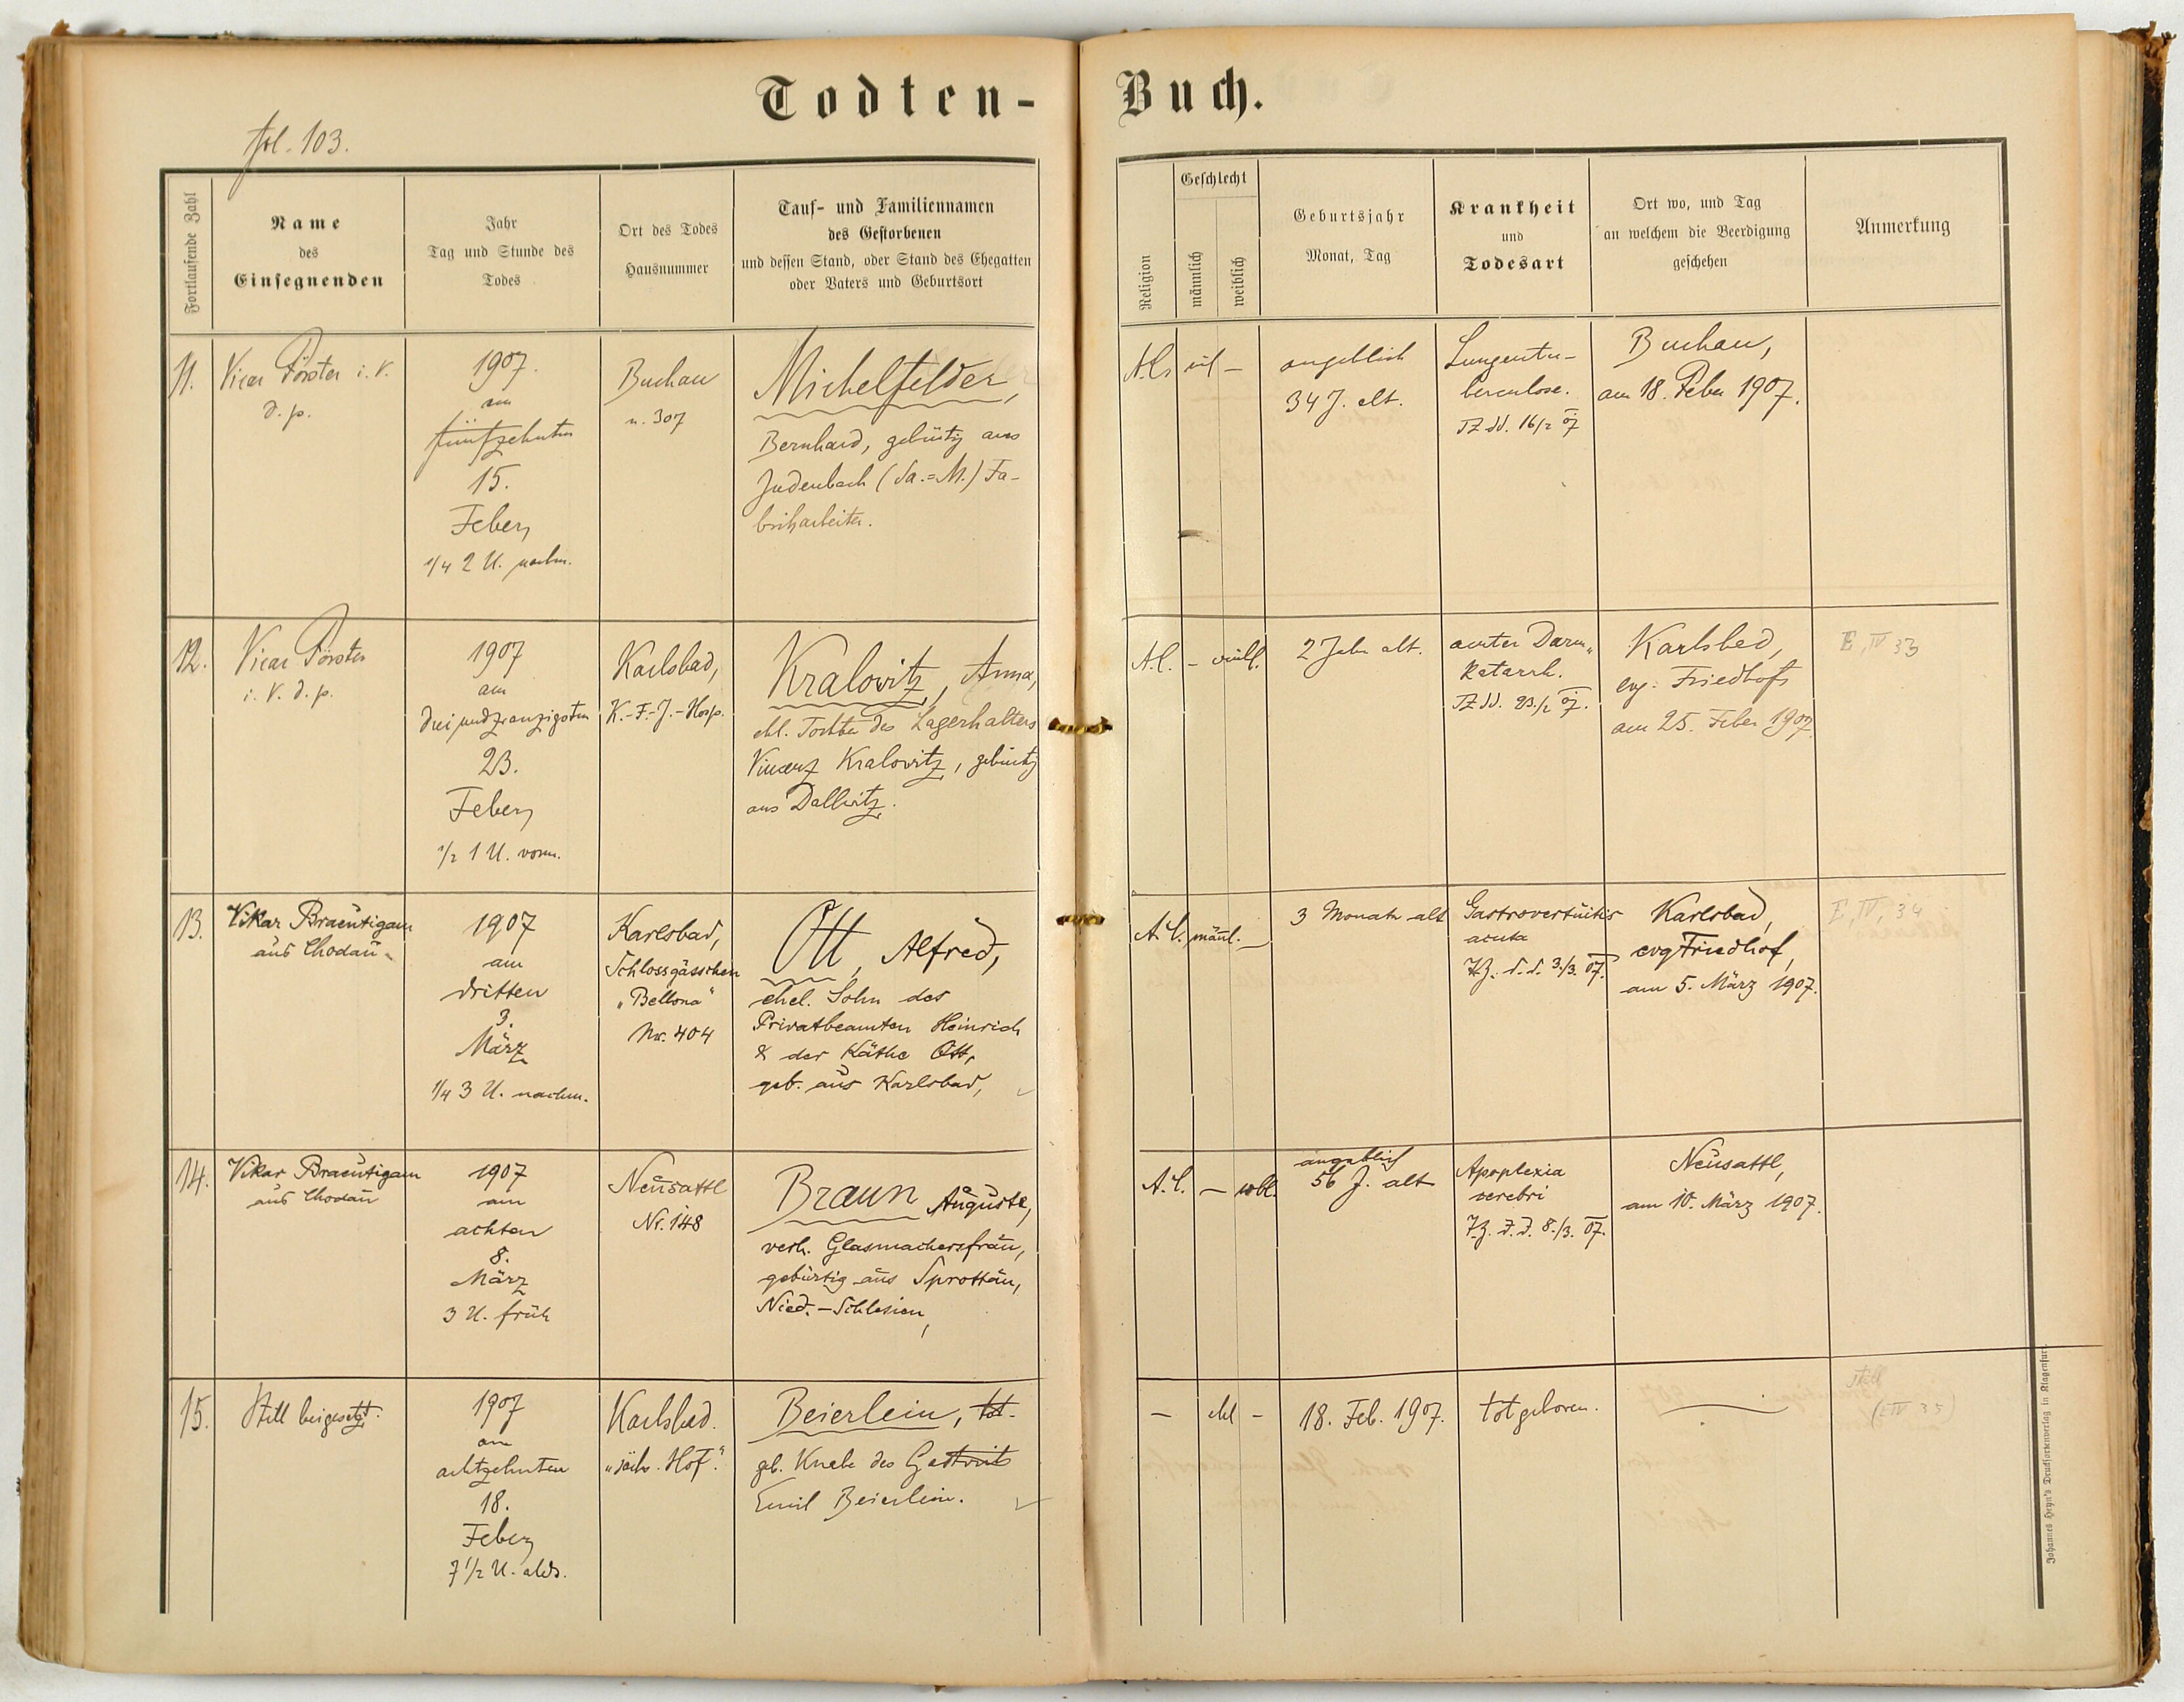 Todten-Buch.
fol. 103.
Fortlaufende Zahl
Name
des
Einsegnenden
Jahr
Tag und Stunde des
Todes
Ort des Todes
Hausnummer
Tauf- und Familiennamen
des Gestorbenen
und dessen Stand, oder Stand des Ehegatten
oder Vaters und Geburtsort
Religion
Geschlecht
männlich
weiblich
Geburtsjahr
Monat, Tag
Krankheit
und
Todesart
Ort wo, und Tag
an welchem die Beerdigung
geschehen
Anmerkung
11.
Vicar Förster i. V.
d. p.
1907.
am
fünfzehnten
15.
Feber,
1/4 2 U. nachm.
Buchau
n. 307
Michelfelder,
Bernhard, gebürtig aus
Judenbach (Sa.=M.) Fa-
brikarbeiter.
A.C.
ml
-
angeblich
34 J. alt.
Lungentu-
berculose.
TZ dd. 16/2 07
Buchau,
am 18. Feber 1907.
12.
Vicar Förster
i. V. d. p.
1907
am
dreiundzwanzigsten
23.
Feber,
1/2 1 U. vorm.
Karlsbad,
K.-F.-J.-Hosp.
Kralovitz, Anna,
ehl. Tochter des Lagerhalters
Vincenz Kralovitz, gebürtig
aus Dallwitz.
A.C.
-
weibl.
2 Jahr alt.
acuter Darm-
katarrh.
TZ dd. 23./2 07.
Karlsbad,
evg. Friedhof
am 25. Feber 1907.
E, IV 33
13.
Vikar Braeutigam
aus Chodau
1907
am
dritten
3.
März
1/4 3 U. nachm.
Karlsbad,
Schlossgässchen
„Bellona“
Nr. 404
Ott, Alfred,
ehel. Sohn des
Privatbeamten Heinrich
& der Käthe Ott,
geb. aus Karlsbad,
A.C.
männl.
-
3 Monate alt
acuta
TZ. d.d. 3./3. 07.
Karlsbad,
evg Friedhof,
am 5. März 1907.
E, IV, 34
14.
Vikar Braeutigam
aus Chodau
1907
am
achten
8.
März
3 U. früh
Neusattl
Nr. 148
Braun Auguste,
verh. Glasmachersfrau,
gebürtig aus Sprottau,
Nied.-Schlesien,
A.C.
-
wbl.
angeblich
56 J. alt
Apoplexia
cerebri
TZ. d.d. 8./3. 07.
Neusattl,
am 10. März 1907.
15.
Still beigesetzt.
1907
am
achtzehnten
18.
Feber
7 1/2 U. abds.
Karlsbad.
„sächs. Hof.“
Beierlein, tot-
geb. Knabe des Gastwirts
Emil Beierlein.
-
-
18. Feb. 1907.
totgeboren.
still
(E IV 35)
Johannes Heyn's Drucksortenverlag in Klagenfurt.